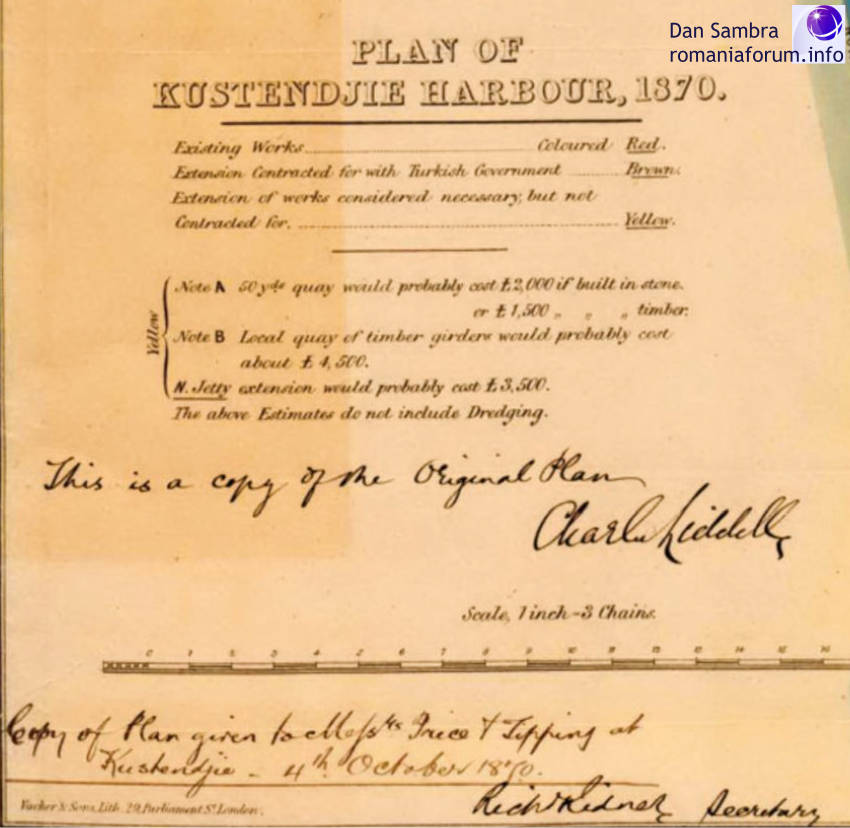 Dan Sambra
romaniaforum.info
PLAN OF
KUSTENDJIE HARBOUR, 1870.
Existing Works ........ Coloured Red.
Extension Contracted for with Turkish Government ........ Brown.
Extension of works considered necessary, but not
Contracted for. ........ Yellow.
Yellow
Note A 50 yds quay would probably cost £2,000 if built in stone.
or £1,500 „ „ „ timber.
Note B Local quay of timber girders would probably cost
about £4,500.
N. Jetty extension would probably cost £3,500.
The above Estimates do not include Dredging.
This is a copy of the Original Plan
Charles Liddell
Scale, 1 inch = 3 Chains.
0 1 2 3 4 5 6 7 8 9 10 11 12 13 14 15 16
Copy of Plan given to Messrs Price & Tipping at
Kustendjie - 4th October 1870.
Vacher & Sons, Lith. 29, Parliament St. London.
Richd Secretary